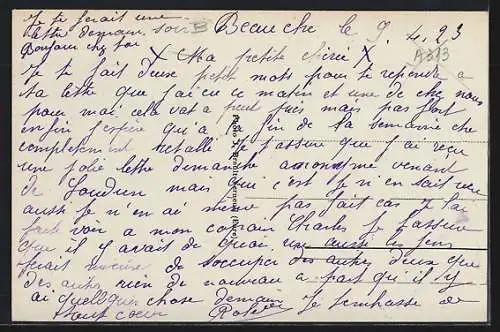 Je te ferait une
lettre demain soir
Bonjour chez toi
Beauche le 9. 4. 23
A313
X Ma petite chérie X
Je te fait deux petit mots pour te reponde a
ta lettre que j'ai eu ce matin et une de chez nous
pour moi cela vat a peut près mais pas fort
enfin j'espère qu'a la fin de la semaine être
complètement retablie Je t'assure que j'ai reçu
une jolie lettre dimanche anonyme venant
de Loudun mais qui c'est Je n'en sait rien
aussi Je n'en ai même pas fait cas Je l'ai
fait voir a mon cousin Charles Je t'assure
que il y avait de quoi rire aussi les gens
ferait mieux de s'occuper des autres que
des autres rien de nouveau a part qu'il y
ai quelques chose demain Je t'embrasse de
tout cœur